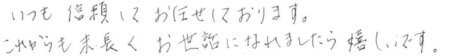 いつも信頼してお任せしております。
これからも末長くお世話になれましたら嬉しいです。